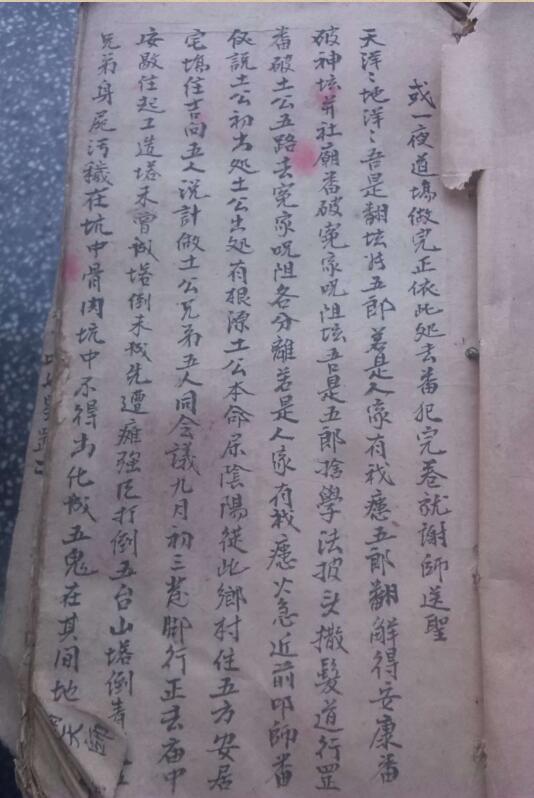 或一夜道塲做完正依此処去畨犯完卷就謝師送聖
天洋〻地洋〻吾是翻坛将五郎若是人家有栽瘧五郎翻解得安康畨
破神坛并社廟畨破寃家呪阻坛吾是五郎捨學法披头撒髮道行罡
畨破土公五路去寃家呪阻各分離若是人家有栽瘧火急近前叩師畨
伩說土公初出処土公出処有根源土公本命屬陰陽徒此鄉村住五方安居
宅塲住吉向五人說計做土公兄弟五人同会議九月初三 脚行正去庙中
安歇住起工造塔未曾成塔倒未成先遭 强臣打倒五台山塔倒
兄弟身屍污穢在坑中骨肉坑中不得出化成五鬼在其间地